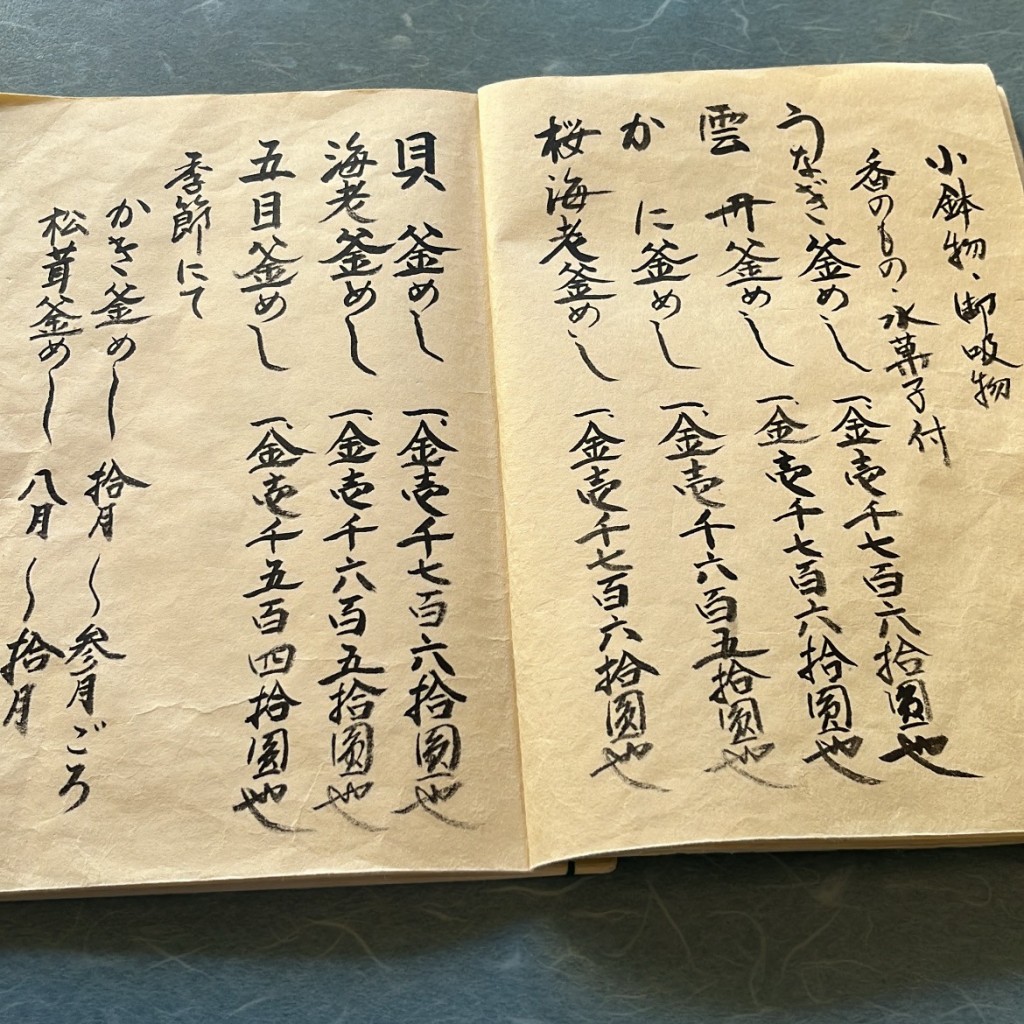 小鉢物、御吸物
香のもの、水菓子付
うなぎ釜めし 一、金壱千七百六拾圓也
雲丹釜めし 一、金壱千七百六拾圓也
かに釜めし 一、金壱千六百五拾圓也
桜海老釜めし 一、金壱千七百六拾圓也
貝釜めし 一、金壱千七百六拾圓也
海老釜めし 一、金壱千六百五拾圓也
五目釜めし 一、金壱千五百四拾圓也
季節にて
かき釜めし 拾月〜参月ごろ
松茸釜めし 八月〜拾月